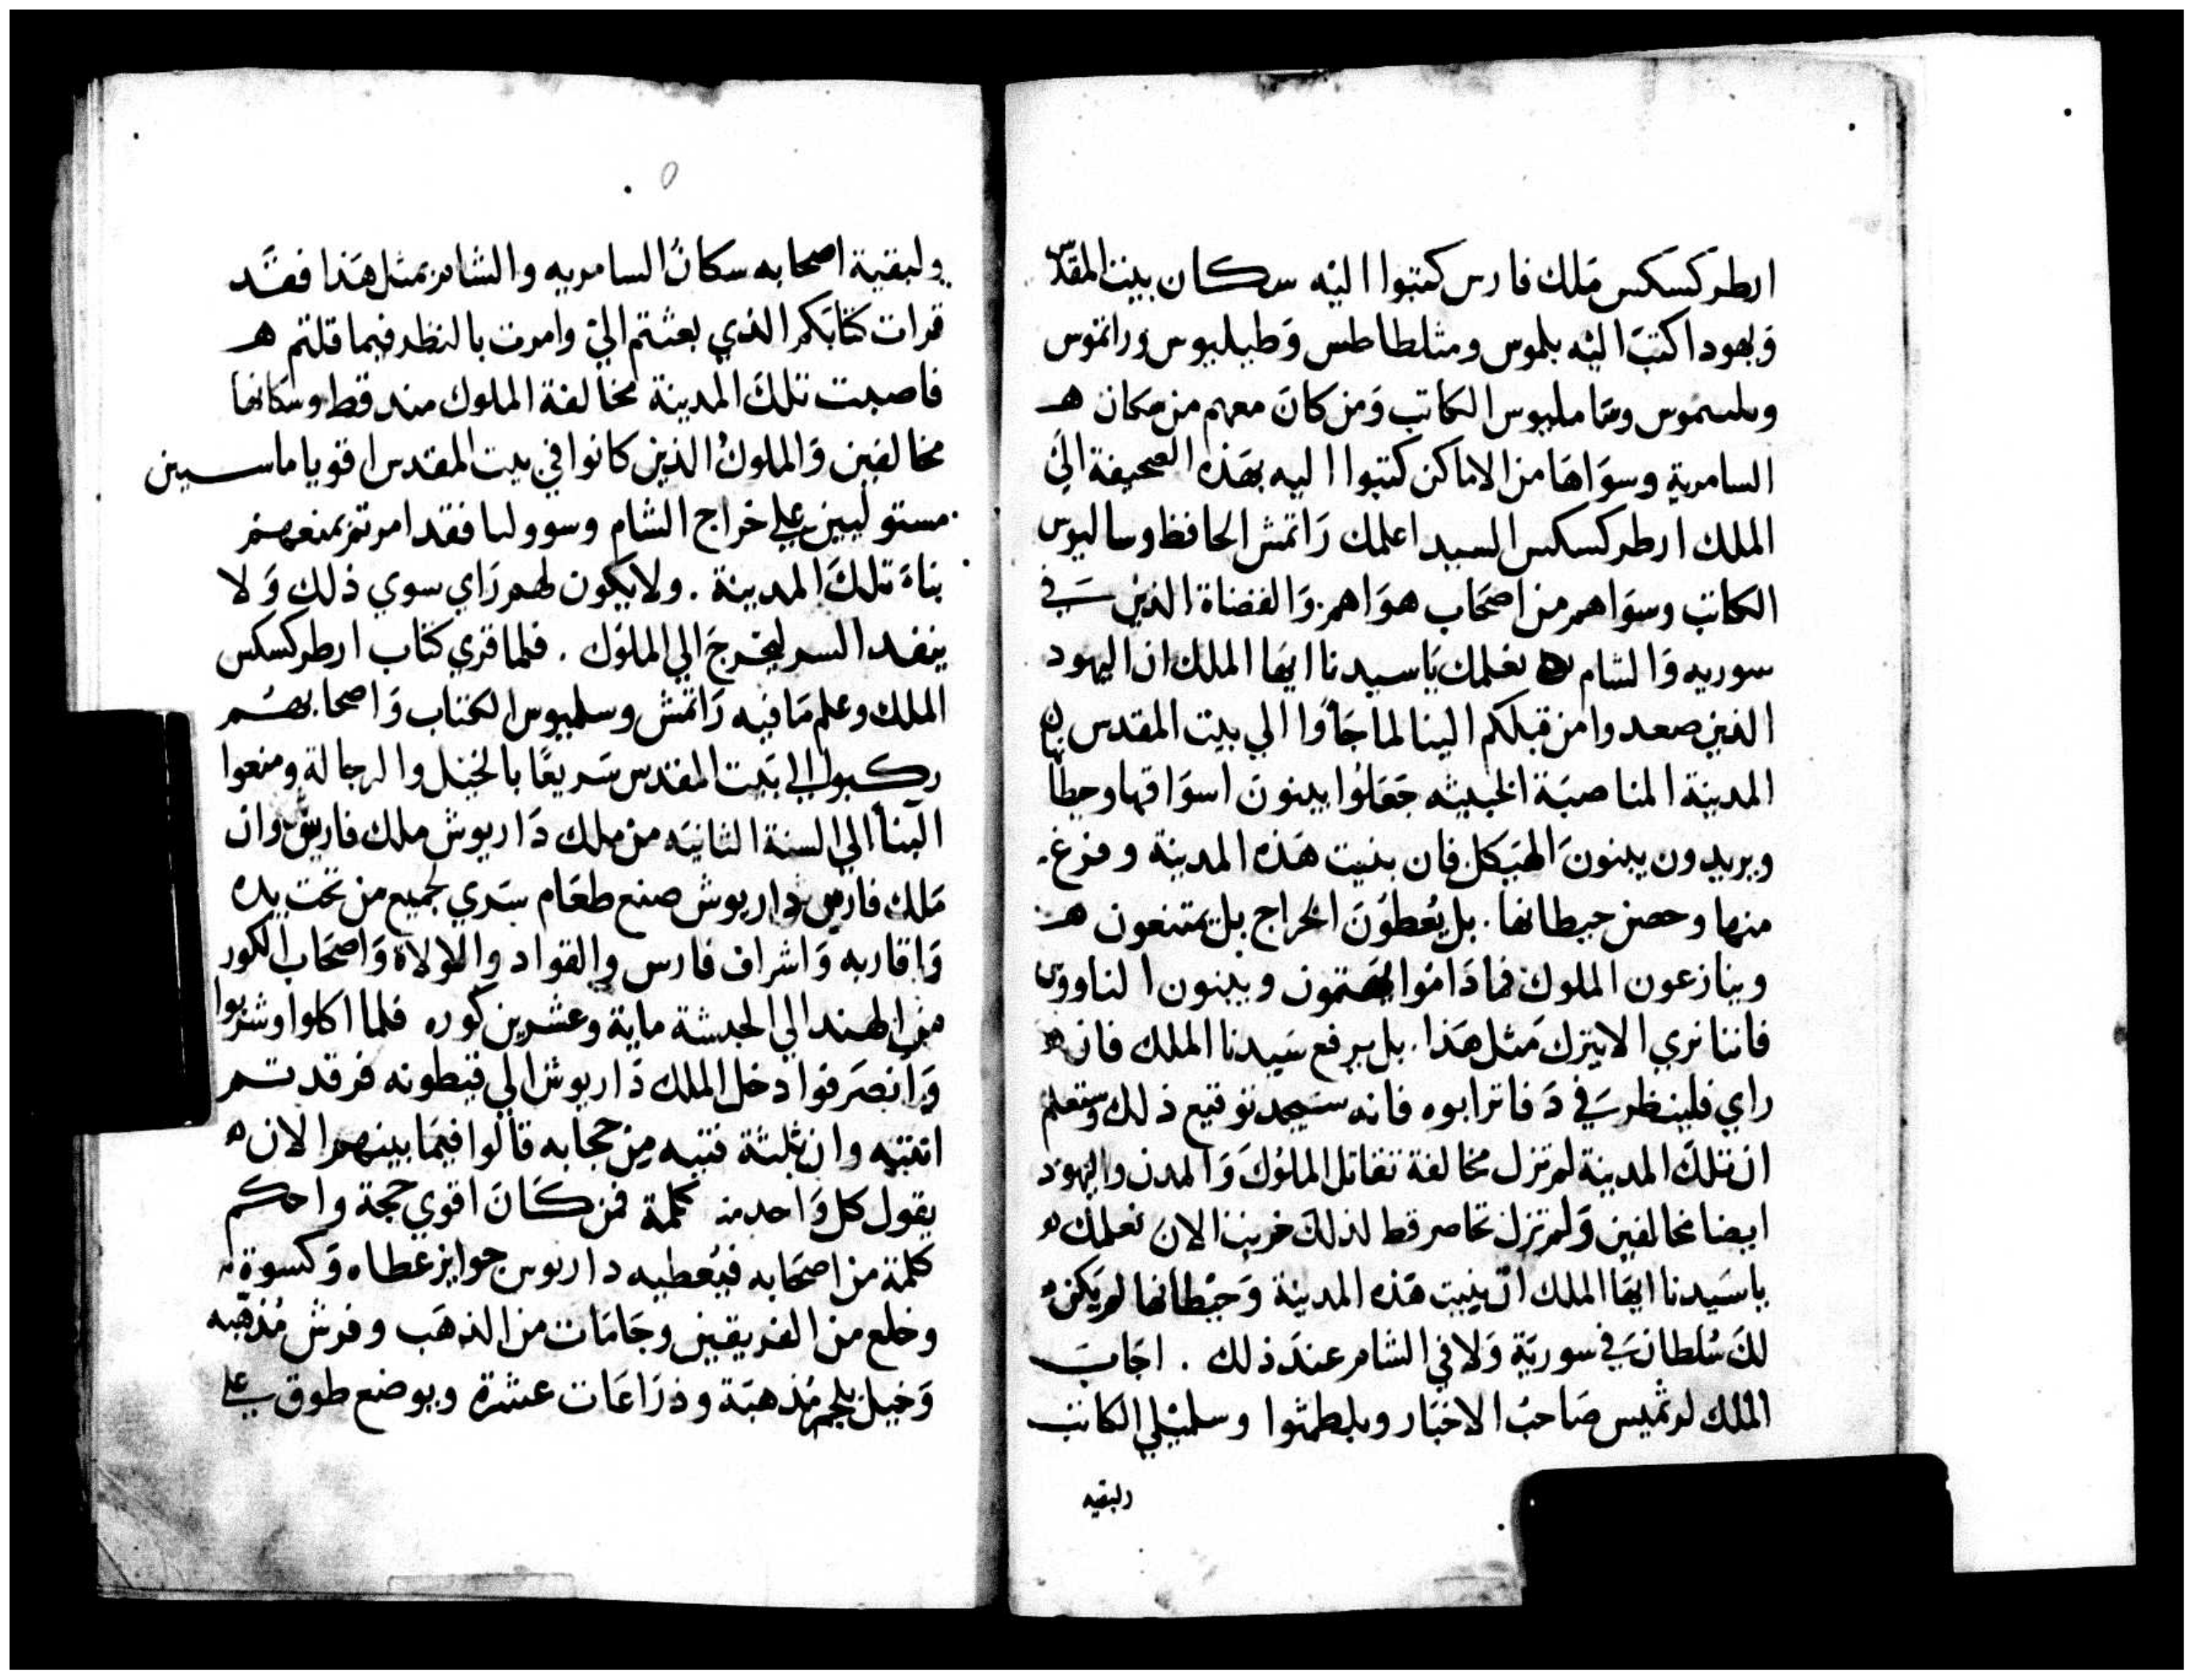 ارطركسكس ملك فارس كتبوا اليه سكان بيت المقدس
وَيهودا كتبَ اليه بلموس ومثلطاطس وَطبلبيوس وراثموس
وبلسموس وسَاملبيوس الكاتب وَمن كانَ معهم من مكان هـ
السامرية وسوَاهَا من الاماكن كتبوا اليه بهَذه الصحيفة الىَ
الملك ارطركسكس السيد اعلمك رَاتمش الحافظ وسالبوس
الكاتب وسوَاهم من اصحَاب هوَاهم وَالقضاة الذين فيَ
سوريه وَالشام ه نعلمك يَاسيدنا ايهَا الملك ان اليهود
الذين صعدوا من قبلكم الينا لما جَاوا الي بيت المقدس ه
المدينة المناصبَة الخبيثه جَعَلوُا يبنونَ اسوَاقها وحيطانها
ويريدون يبنونَ الهيَكل فان بنيت هَذه المدينة وفرغ.
منها وحصن حيطانها. بل يُعطوُنَ الخراج بل يمتنعون هـ
وينازعون الملوك فما دَاموُا يهتمون ويبنون الناووس
فاننا نري الا يترك مَثل هَذا. بل يرفع سَيدنا الملك فان ه
راي فلينظر فيَ دَفاتر ابوه فانه سيجد توقيع ذلك وستعلم
ان تلكَ المدينة لم تزل مخالفة تقاتل الملوُكَ وَالمدن واليهود
ايضا مخالفين وَلم تزل تحاصر قط لذلكَ خربت الان نعلمكَ ه
ياسَيدنا ايهَا الملك ان بنيت هَذه المدينة وَحيْطانها لم يَكن ه
لكَ سُلطان فيَ سوريَة وَلا في الشام عندَ ذلك . اجَابَ
الملك لرثميس صَاحبُ الاخبَار وبلطمثوا وسلمبْلي الكاتب
ولبقيه
ولبقية اصحابه سكانُ السامريه والشام بمثل هَذا فقَد
قرات كتابَكم الذي بعثتم اليَ وامرت بالنظر فيما قلتم هـ
فاصبت تلكَ المدينة مخالفة الملوك منذ قط وسكانها
مخالفين وَالملوكُ الذين كانوا في بيت المقدس اقويا ماسين
مستوليين علي خراج الشام وسووليا فقد امرتم بمنعهم
بناهَ تلكَ المدينة . ولا يكون لهم رَاي سوي ذلك وَلا
ينفد السر ليخرجَ الي الملوُك . فلما قري كتاب ارطركسكس
الملك وعلم مَا فيه رَاتمش وسلمبوس الكتاب وَاصحابهُم
ركبوا الي بَيت المقدس سَريعًا بالخيل والرجالة ومنعوا
البنا الي السنة الثانيَه من ملك دَاريوش ملك فارس وان
مَلك فارس داريوش صنع طعَام سَري لجميع من تحت يده
وَاقاربه وَاشراف فارس والقواد والولاة وَاصحَاب الكور
من الهند الي الحبشة ماية وعشرين كوره فلما اكلوا وشربوا
وَانصَرفوا دخل الملك دَاريوش الي قيطونه فرقد تم
انتبه وان ثلثة فتيه من حجابه قالوا فيمَا بينهم الان ه
يقول كل وَاحد منه كلمة فمن كَانَ اقوي حجة واحكم
كلمة من اصحَابه فيُعطيه داريوس جوايز عطاه وَكسوة
وخلع من الفريقين وجَامَات من الذهَب وفرش مُذهَبه
وَخيل بلجم مُذهبَة وذرَاعَات عشرة ويوضع طوق علي